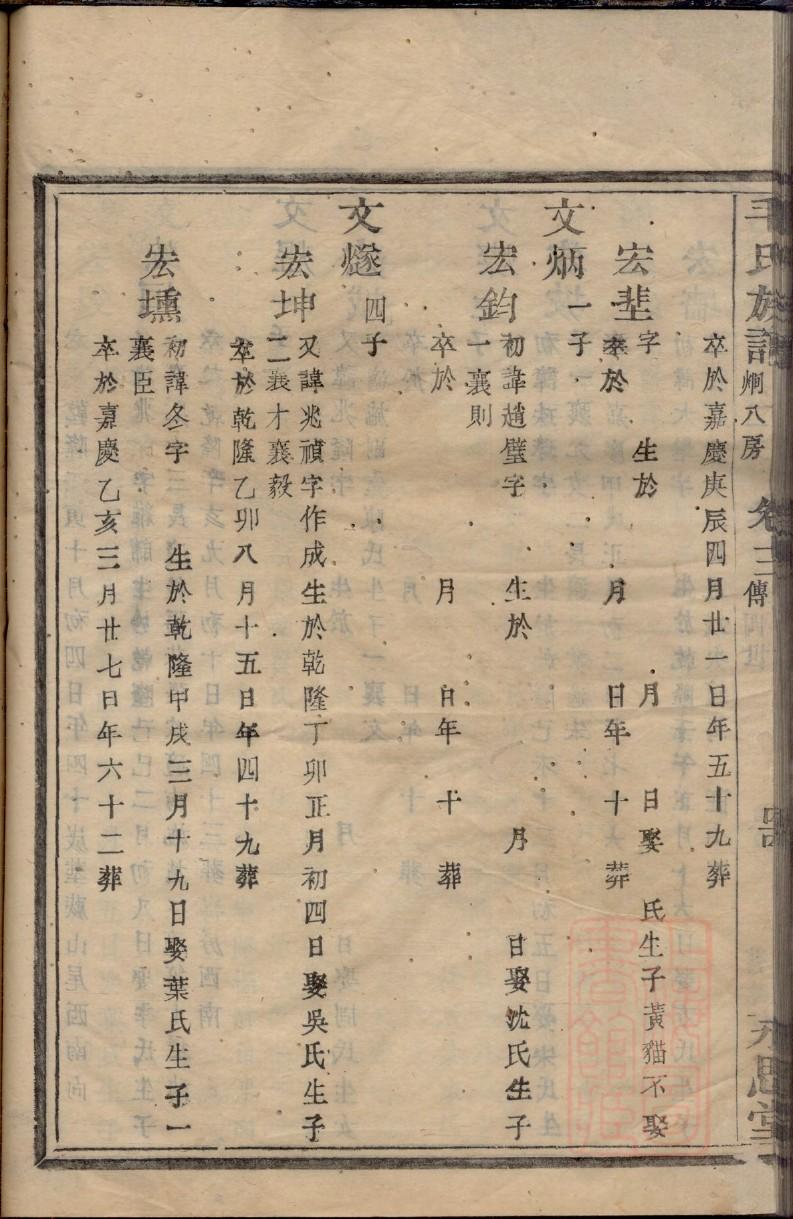 毛氏族譜 炯八房 卷十三 傳 四世 永思堂
卒於嘉慶庚辰四月廿一日年五十九葬
宏 字 生於 月 日娶 氏生子黃貓不娶
卒於 月 日年 十 葬
文炳 一子
宏鈞 初諱趙璧字 生於 月 日娶沈氏生子
一襄則
卒於 月 日年 十 葬
文燧 四子
宏坤 又諱兆禎字作成生於乾隆丁卯正月初四日娶吳氏生子
二襄才襄毅
卒於乾隆乙卯八月十五日年四十九葬
宏壎 初諱冬字 生於乾隆甲戌三月十九日娶葉氏生子一
襄臣
卒於嘉慶乙亥三月廿七日年六十二葬